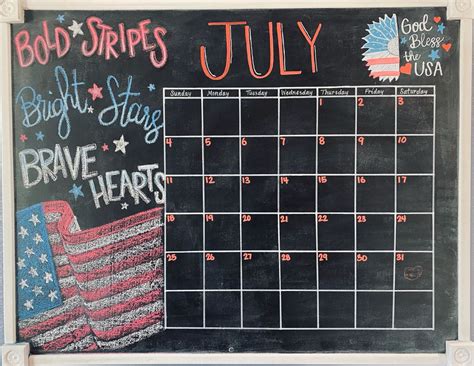 BOLD STRIPES
Bright Stars
BRAVE
HEARTS
JULY
God
Bless
the
USA
Sunday Monday Tuesday Wednesday Thursday Friday Saturday
1 2 3
4 5 6 7 8 9 10
11 12 13 14 15 16 17
18 19 20 21 22 23 24
25 26 27 28 29 30 31